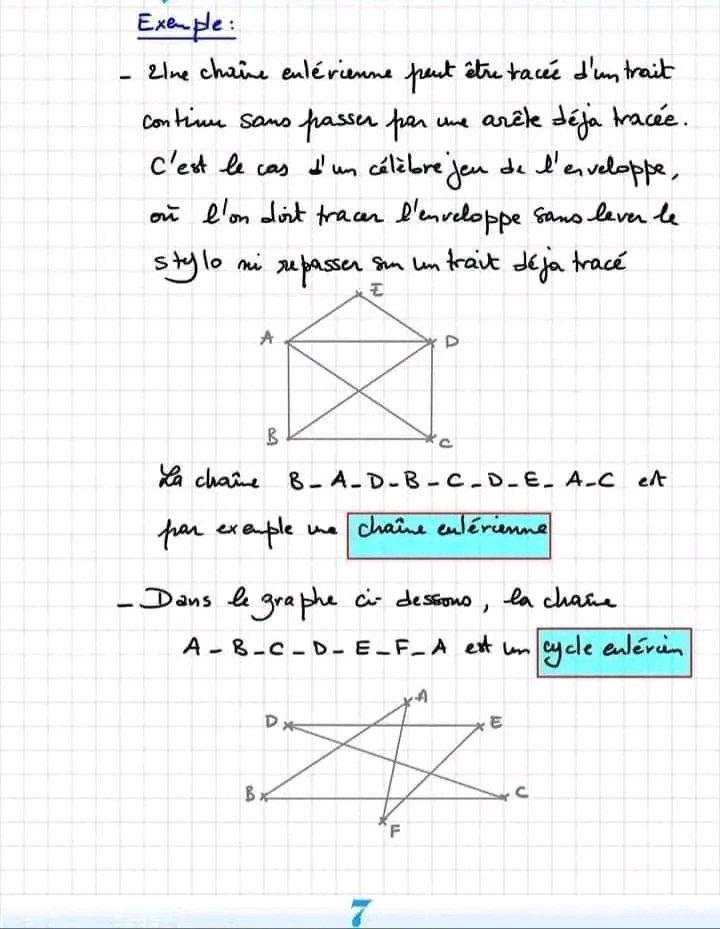 Exemple:
- Une chaîne eulérienne peut être tracée d'un trait
continu sans passer par une arête déja tracée.
C'est le cas d'un célèbre jeu de l'enveloppe,
où l'on doit tracer l'enveloppe sans lever le
stylo ni repasser sur un trait déja tracé
E
A D
B C
La chaîne B-A-D-B-C-D-E-A-C est
par exemple une chaîne eulérienne
- Dans le graphe ci-dessous, la chaîne
A-B-C-D-E-F-A est un cycle eulérien
A
D E
B C
F
7